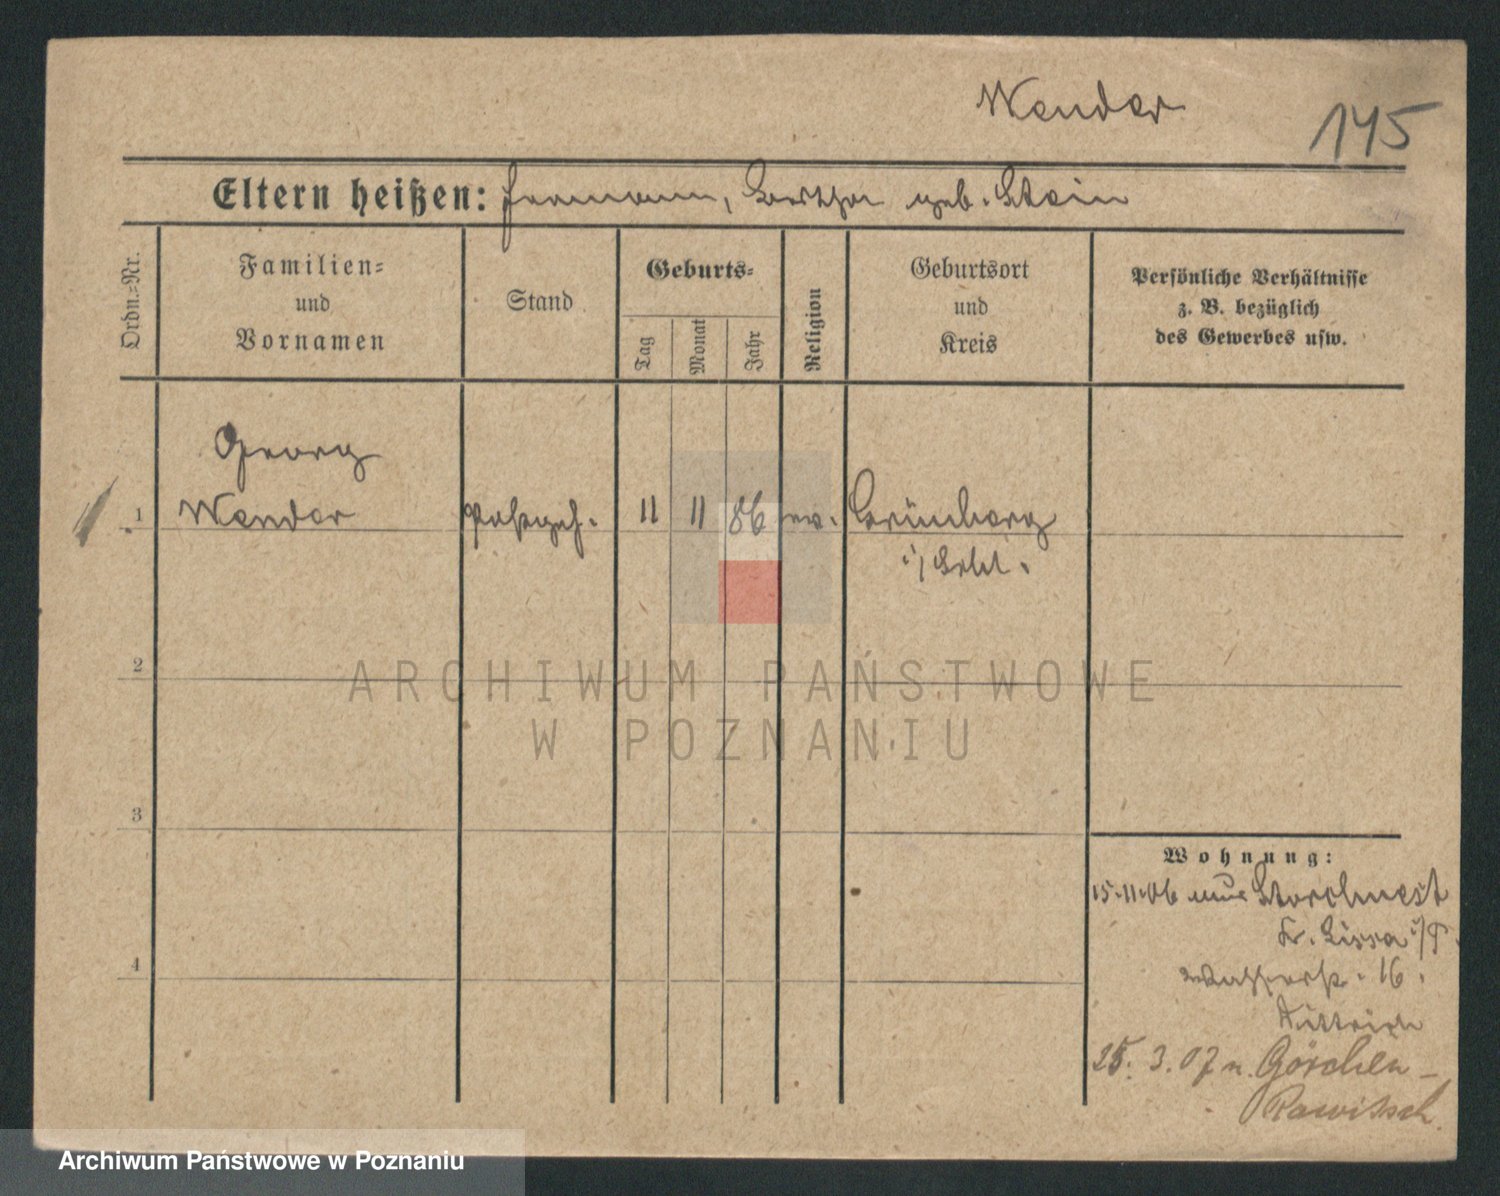 Wender
145
Eltern heißen: Hermann, Bertha geb. Stein
Ordn.=Nr.
Familien=
und
Vornamen
Stand
Geburts=
Tag
Monat
Jahr
Religion
Geburtsort
und
Kreis
Persönliche Verhältnisse
z. B. bezüglich
des Gewerbes usw.
Georg
1 Wender Postgeh. 11 11 86 ev. Grünberg
i/Schl.
2
ARCHIWUM PAŃSTWOWE
W POZNANIU
3
4
Wohnung:
15.11.06 Storchnest
Kr. Lissa i/P.
16.
Dittrich
25. 3. 07 n. Görchen-
Rawitsch.
Archiwum Państwowe w Poznaniu